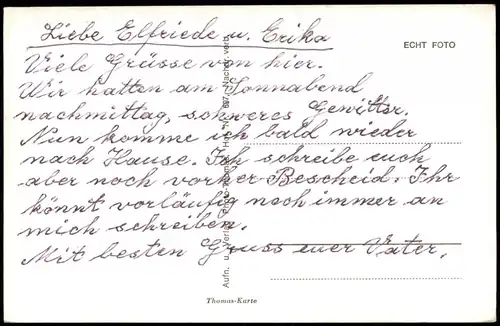 Liebe Elfriede u. Erika
ECHT FOTO
Viele Grüsse von hier.
Wir hatten am Sonnabend
nachmittag, schweres Gewitter.
Nun komme ich bald wieder
nach Hause. Ich schreibe euch
aber noch vorher Bescheid. Ihr
könnt vorläufig noch immer an
mich schreiben.
Mit besten Gruss euer Vater.
Aufn. u. Verlag verb.
Thomas-Karte